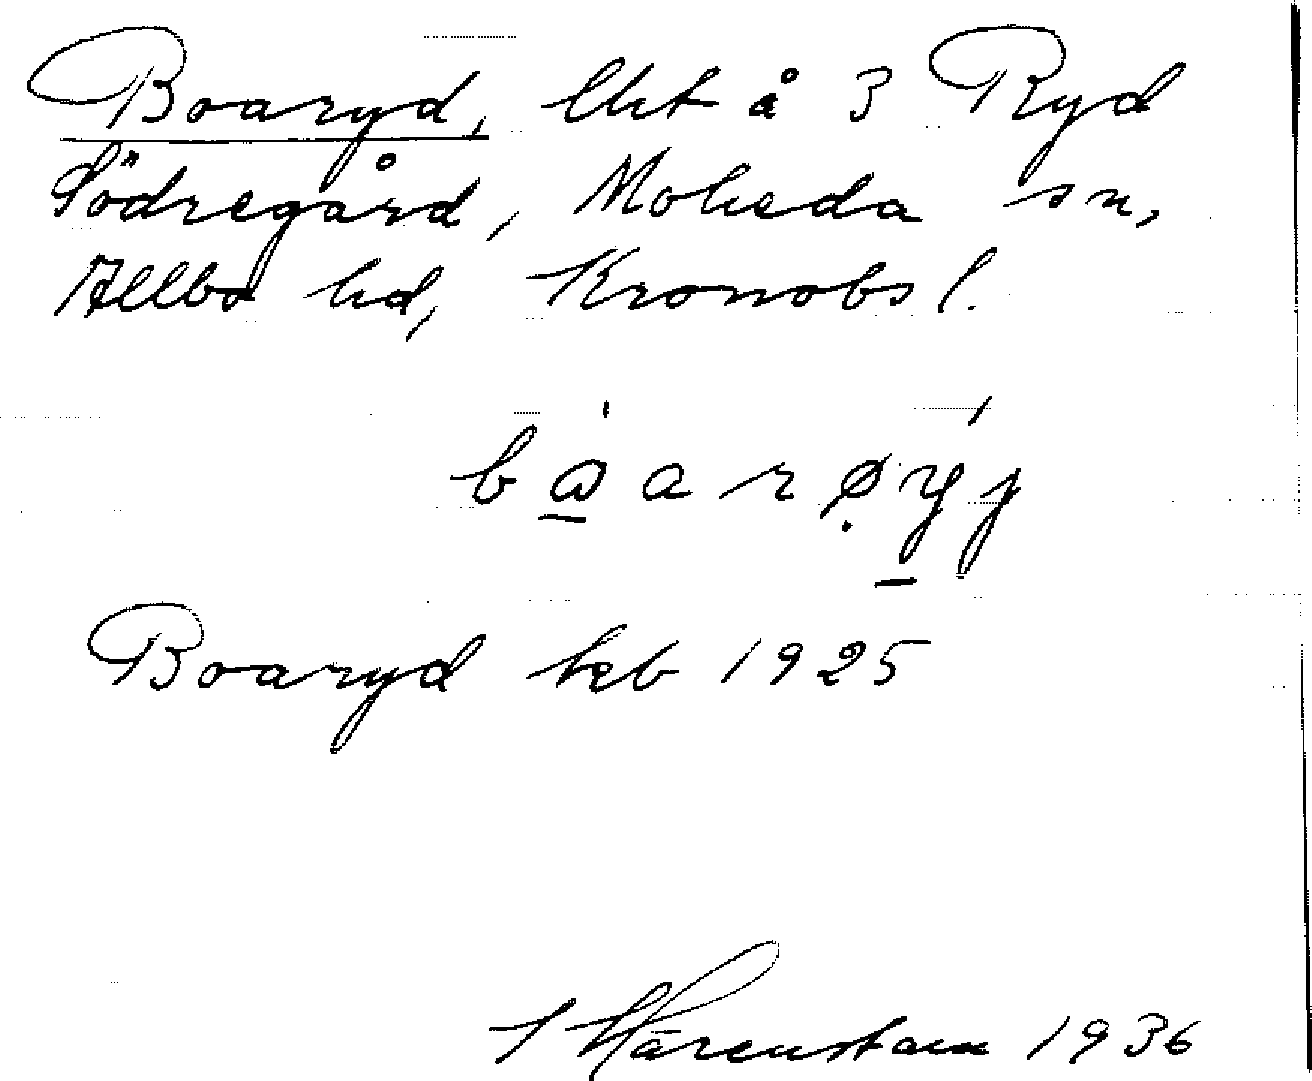 Boaryd, lht å 3 Ryd
Södregård, Moheda sn,
Allbo hd, Kronobs l.
Boaryd keb 1925
Härenstam 1936